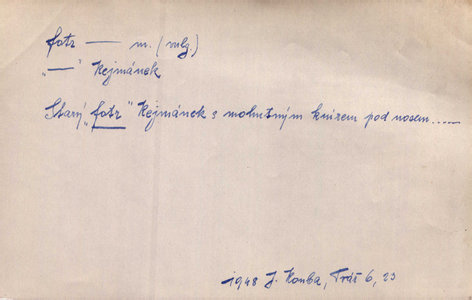 fotr — m. (vulg.)
„—" Kejmánek
Starý „fotr" Kejmánek s mohutným knírem pod nosem.....
1948 J. Kouba, Tráť 6, 23